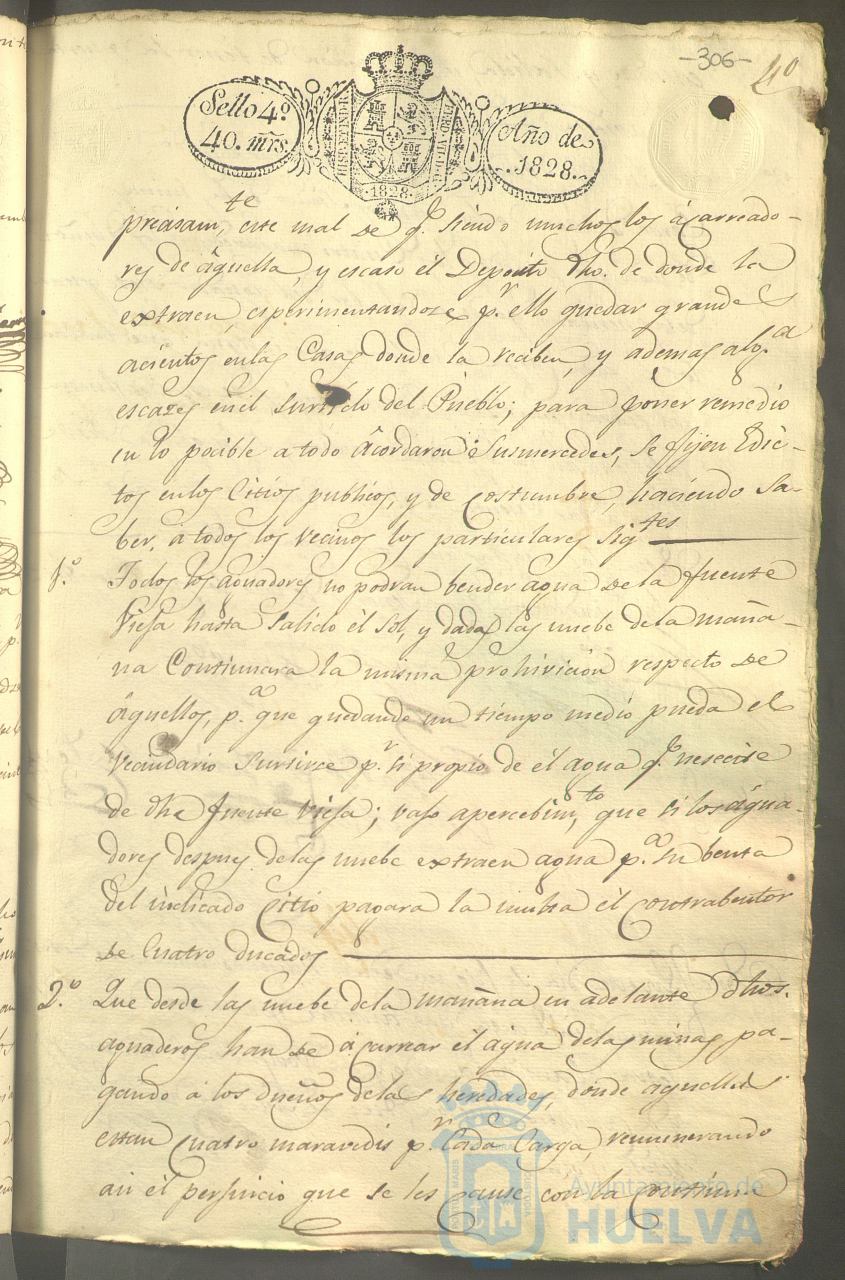 -306-
40
Sello 4º
40. mrs.
HISP. ET IND. R.
FERD. VII. D. G.
1828.
Año de
1828.
precisamte, este mal de q.e siendo muchos los ácarreado-
res de áquella, y escaso él Deposito dho. de donde la
extraen, esperimentandose p.r ello quedar grandes
acientos en las Casas donde la reciben, y ademas alg.a
escazes en el surtido del Pueblo; para poner remedio
en lo pocible a todo ácordaron Susmercedes, se fijen Edic-
tos en los Citios publicos, y de Costumbre, haciendo sa-
ber, á todos los vecinos los particulares sigtes
1.º Todos los aguadores no podran bender agua de la fuente
Vieja hasta salido él sol, y dadas las nuebe de la maña-
na Continuara la misma prohivicion respecto de
áquellos, p.a que quedando un tiempo medio pueda el
vecindario surtirce p.r si propio de él agua q.e nesecite
de dha fuente Vieja; vajo apercebim.to que si los água-
dores despues de las nuebe extraen agua p.a su benta
del indicado Citio pagara la multa él Contrabentor
de Cuatro ducados
2.º Que desde las nuebe de la mañana en adelante dhos.
aguaderos han de ácarrear él água de las minas, pa-
gando á los dueños de las heredades, donde áquellas
estan Cuatro maravedis p.r Cada Carga, remunerando
asi él perjuicio que se les cause con la Continua
Ayuntamiento de
HUELVA